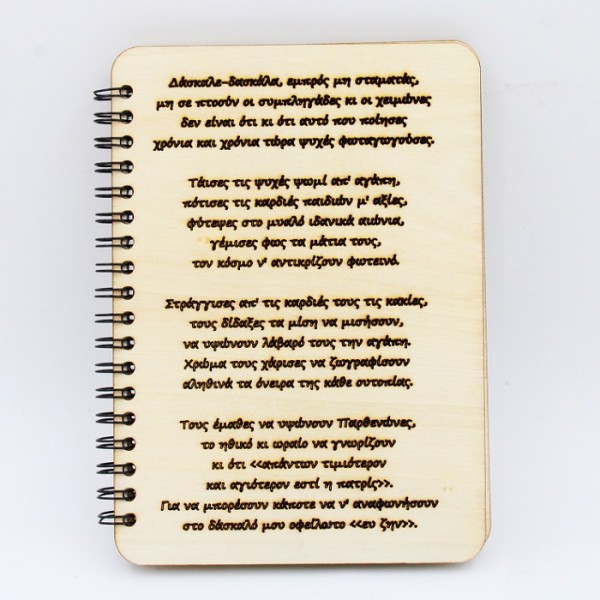 Δάσκαλε-δασκάλα, εμπρός μη σταματάς,
μη σε πτοούν οι συμπληγάδες κι οι χειμώνες
δεν είναι ότι κι ότι αυτό που ποίησες
χρόνια και χρόνια τώρα ψυχές φωταγωγούσες.
Τάισες τις ψυχές ψωμί απ' αγάπη,
πότισες τις καρδιές παιδιών μ' αξίες,
φύτεψες στο μυαλό ιδανικά αιώνια,
γέμισες φως τα μάτια τους,
τον κόσμο ν' αντικρίζουν φωτεινό.
Στράγγισες απ' τις καρδιές τους τις κακίες,
τους δίδαξες τα μίση να μισήσουν,
να υψώνουν λάβαρό τους την αγάπη.
Χρώμα τους χάρισες να ζωγραφίσουν
αληθινά τα όνειρα της κάθε ουτοπίας.
Τους έμαθες να υψώνουν Παρθενώνες,
το ηθικό κι ωραίο να γνωρίζουν
κι ότι <<απάντων τιμιότερον
και αγιότερον εστί η πατρίς>>.
Για να μπορέσουν κάποτε να ν' αναφωνήσουν
στο δάσκαλό μου οφείλωτο <<ευ ζην>>.